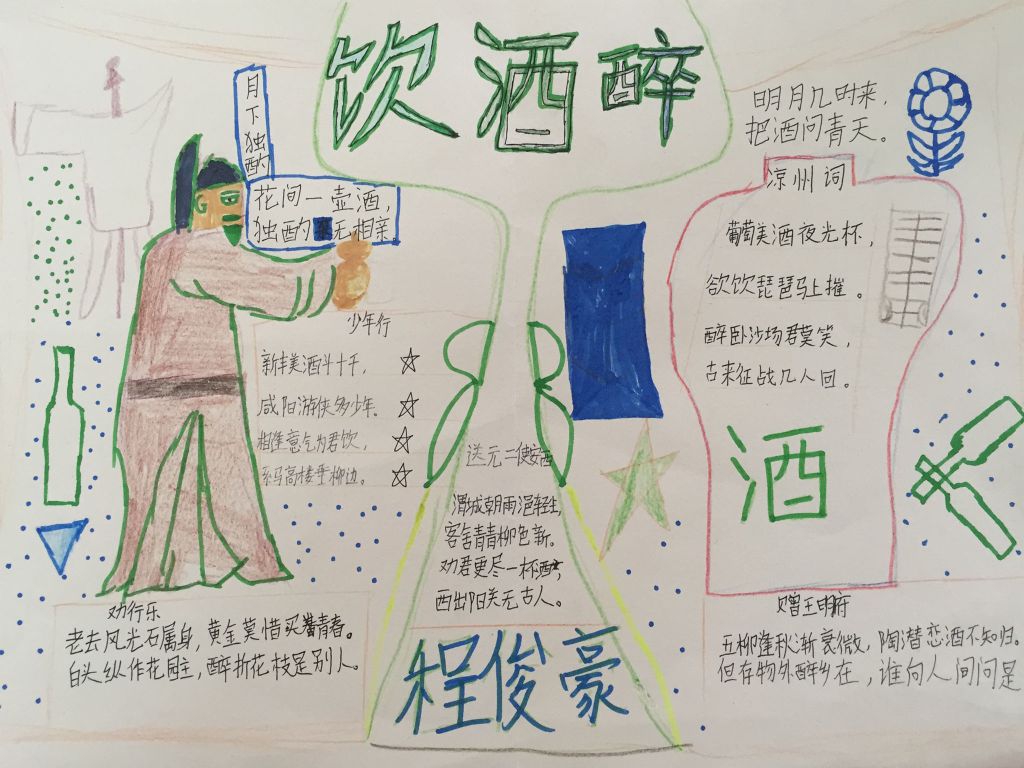 饮酒醉
月下独酌
花间一壶酒，
独酌无相亲
明月几时来，
把酒问青天。
凉州词
葡萄美酒夜光杯，
欲饮琵琶马上摧。
醉卧沙场君莫笑，
古来征战几人回。
酒
少年行
新丰美酒斗十千，
咸阳游侠多少年.
相逢意气为君饮，
系马高楼垂柳边。
送元二使安西
渭城朝雨浥轻尘，
客舍青青柳色新。
劝君更尽一杯酒，
西出阳关无古人。
程俊豪
劝行乐
老去风光不属身，黄金莫惜买青春。
白头纵作花园主，醉折花枝是别人。
赠王明府
五柳逢秋渐衰微，陶潜恋酒不知归。
但存物外醉乡在，谁向人间问是